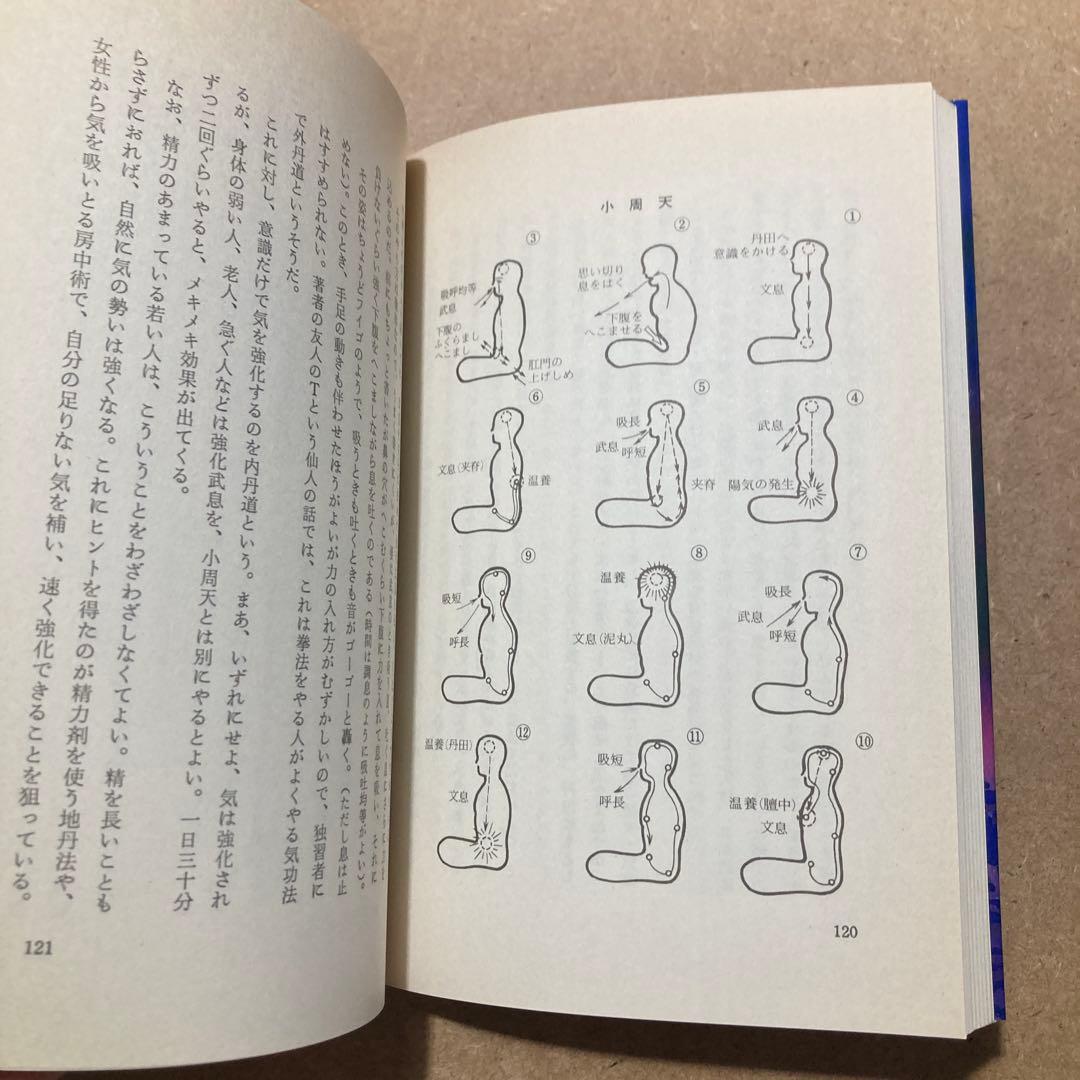 小周天
①
丹田へ
意識をかける
文息
②
思い切り
息をはく
下腹を
へこませる
③
吸呼均等
武息
下腹の
ふくらまし
へこまし
肛門の
上げしめ
④
武息
陽気の発生
⑤
吸長
武息
呼短
夹脊
⑥
文息(夹脊)
温養
⑦
吸長
武息
呼短
⑧
温養
文息(泥丸)
⑨
吸短
呼長
⑩
温養(膻中)
文息
⑪
吸短
呼長
⑫
温養(丹田)
文息
120
負けないぐらい強く下腹をへこましながら息を吐くのである(時間は調息のように吸吐均等がよい)。
その姿はちょうどフイゴのようで、吸うときも吐くときも音がゴーゴーと轟く。(ただし息は止
めない)。このとき、手足の動きも伴わせたほうがよいが力の入れ方がむずかしいので、独習者に
はすすめられない。著者の友人のTという仙人の話では、これは拳法をやる人がよくやる気功法
で外丹道というそうだ。
これに対し、意識だけで気を強化するのを内丹道という。まあ、いずれにせよ、気は強化され
るが、身体の弱い人、老人、急ぐ人などは強化武息を、小周天とは別にやるとよい。一日三十分
ずつ二回ぐらいやると、メキメキ効果が出てくる。
なお、精力のあまっている若い人は、こういうことをわざわざしなくてよい。精を長いことも
らさずにおれば、自然に気の勢いは強くなる。これにヒントを得たのが精力剤を使う地丹法や、
女性から気を吸いとる房中術で、自分の足りない気を補い、速く強化できることを狙っている。
121